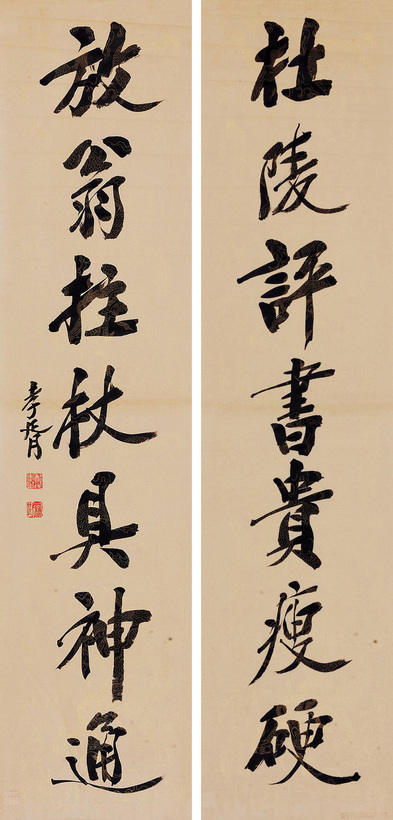 杜陵評書貴瘦硬
放翁拄杖具神通
李孝胥